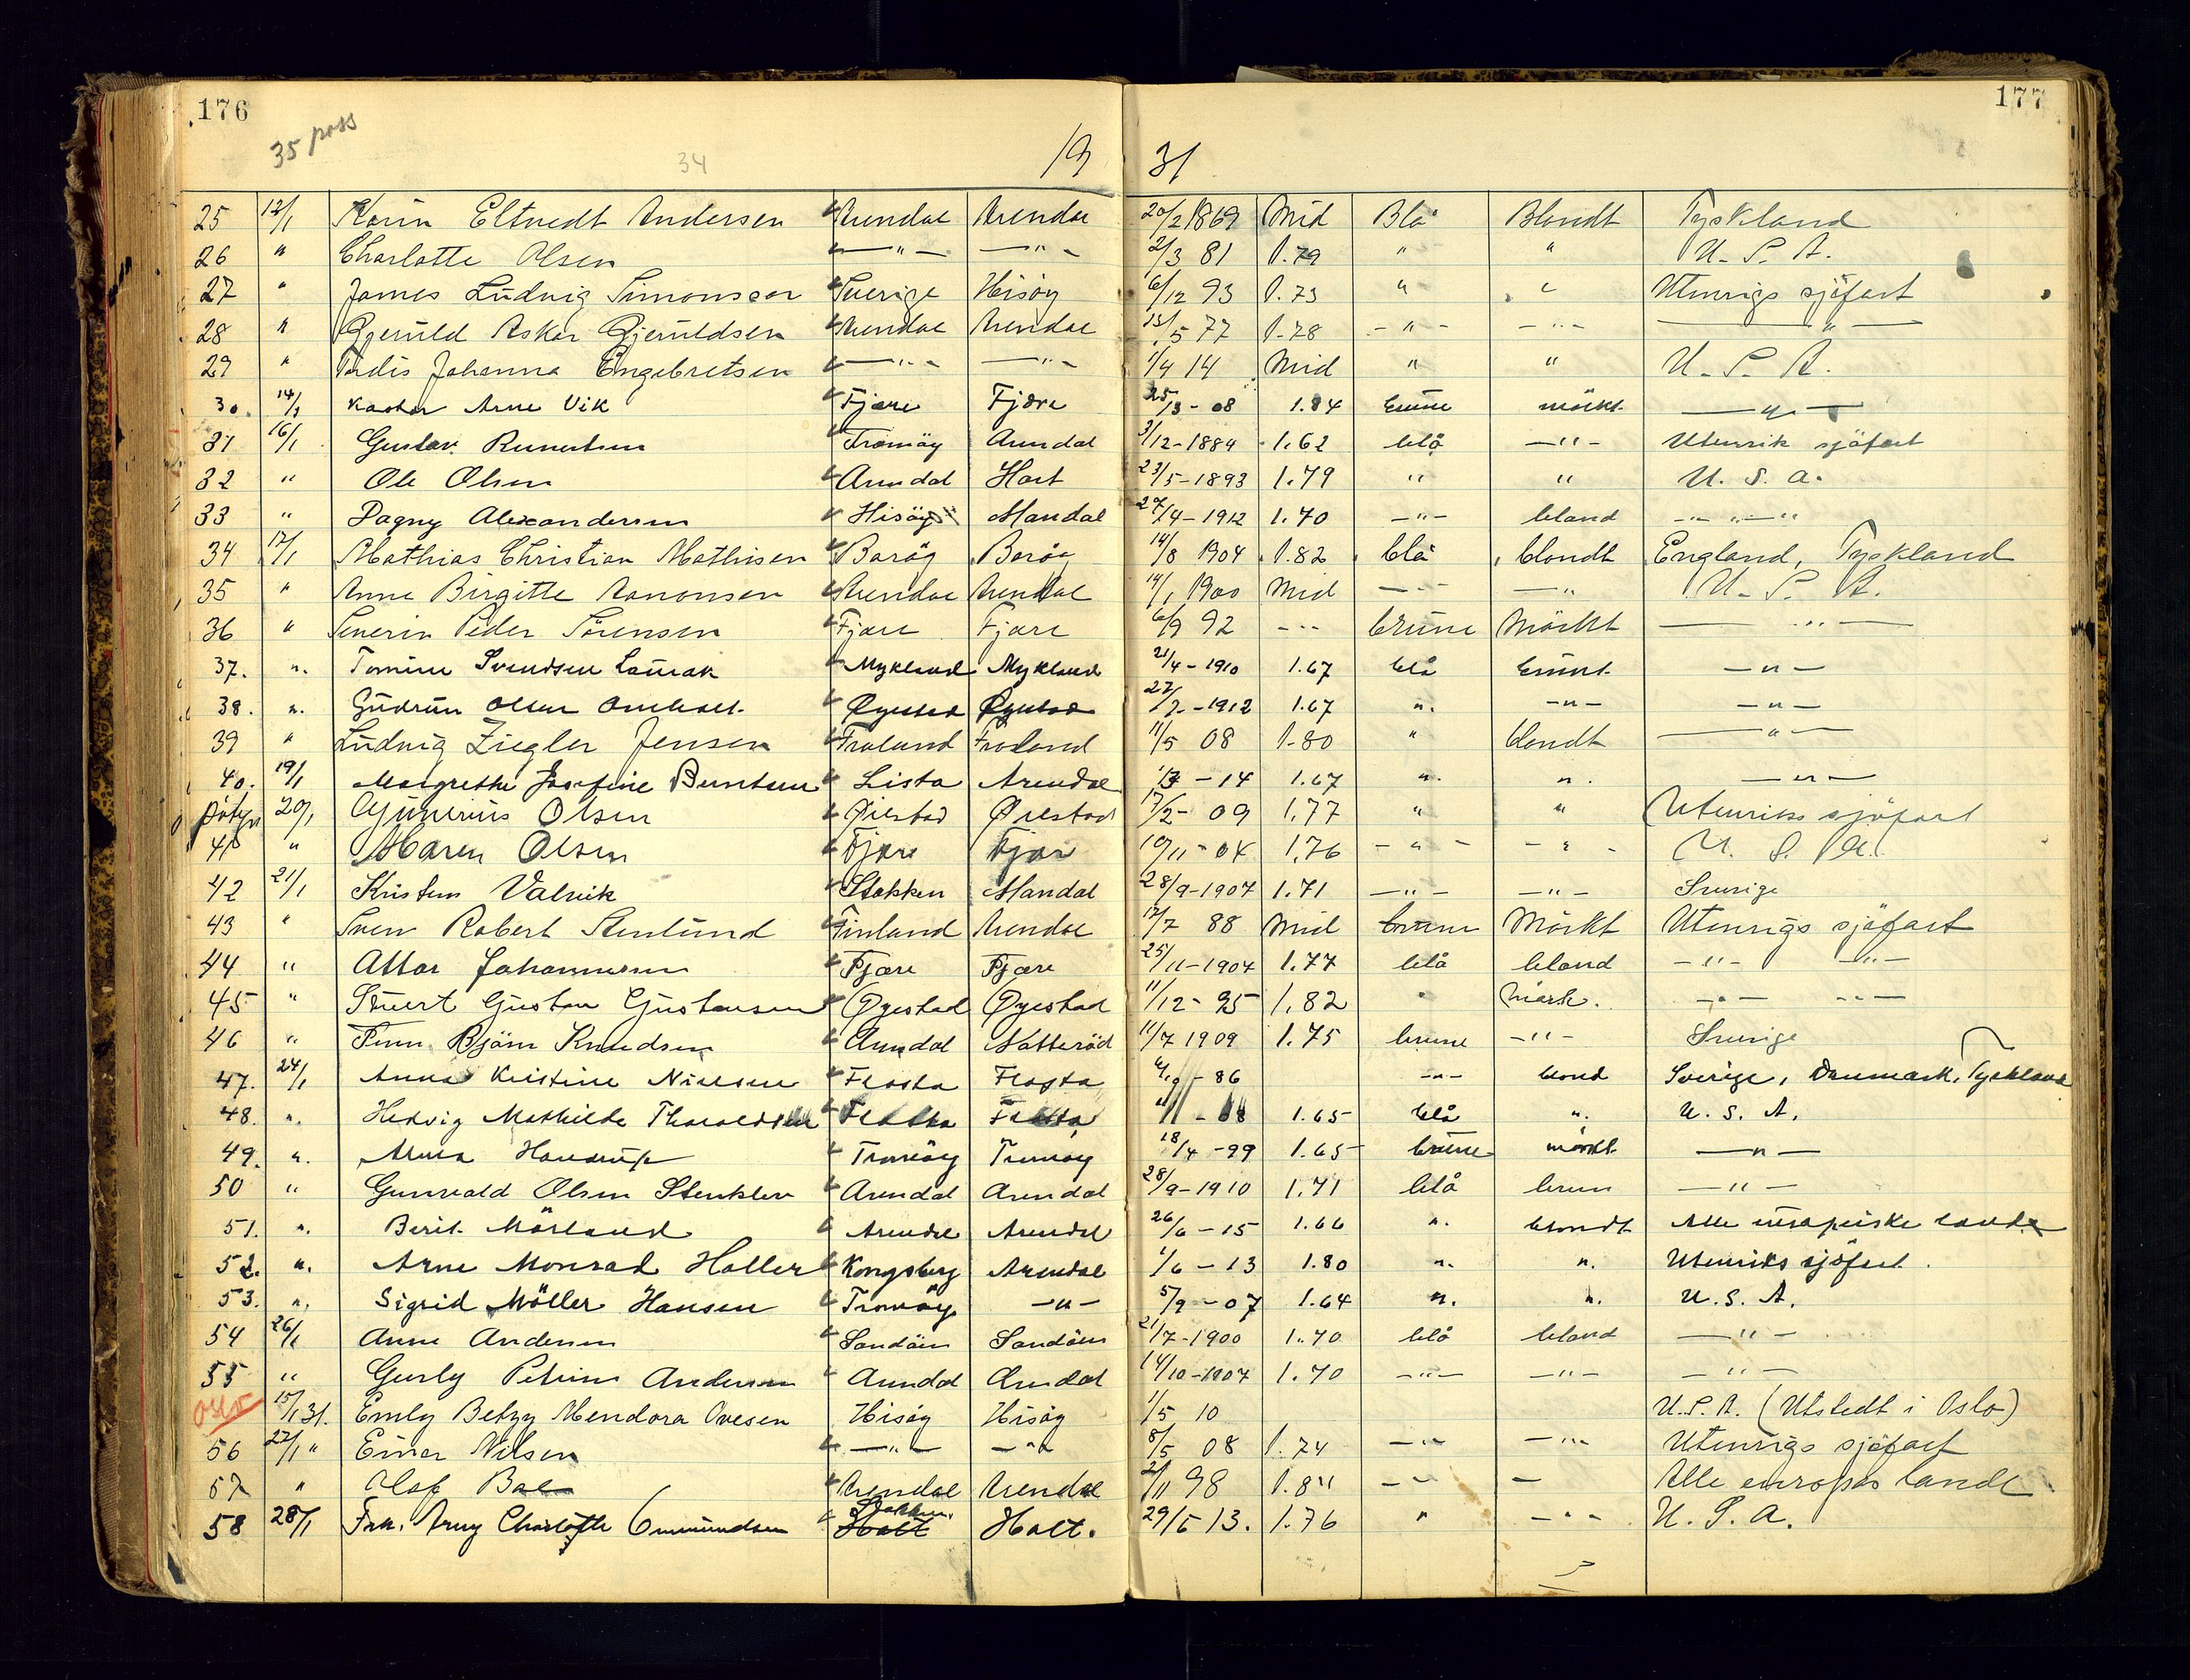 176
177
35 pass
34
19 31
25 12/1 Karin Eltvedt Andersen Arendal Arendal 20/2 1869 Mid Blå Blondt Tyskland
26 " Charlotte Olsen —"— —"— 2/3 81 1.79 " " U. S. A.
27 " James Ludvig Simonsen Sverige Hisöy 6/12 93 1.73 " " Utenrigs sjöfart
28 " Gjeruld Askar Gjeruldsen Arendal Arendal 15/5 77 1.78 —"— —"— —"—
29 " Tordis Johanna Engebretsen —"— —"— 1/4 14 Mid " " U. S. A.
30. 14/1 Arne Vik Fjære Fjære 25/3 - 08 1.84 brune mörkt —"—
31 16/1 Gustav Tromöy Arendal 3/12-1884 1.62 blå —"— Utenrik sjöfart
32 " Ole Olsen Arendal Holt 23/5-1893 1.79 " " U. S. A.
33 " Dagny Alexandersen Hisöy Mandal 27/4-1912 1.70 —"— blond —"—
34 17/1 Mathias Christian Mathisen Baröy Baröy 14/8 1904 1.82 blå blondt England, Tyskland
35 " Anne Birgitte Aanonsen Arendal Arendal 14/1 1900 Mid —"— —"— U. S. A.
36 " Severin Peder Sörensen Fjære Fjære 6/9 92 —"— brune Mörkt —"—
37. " Tomine Svendsen Mykland Mykland 21/4-1910 1.67 blå brunt —"—
38. " Gudrun Olsen Øyestad Øyestad 27/2-1912 1.67 " —"— —"—
39 " Ludvig Ziegler Jensen Froland Froland 11/5 08 1.80 " blondt —"—
40. 19/1 Margrethe Josefine Berntsen Lista Arendal 1/3 - 14 1.67 " " —"—
20/1 Gunerius Olsen Øiestad Øiestad 17/2- 09 1,77 " " Utenriks sjöfart
41 " Maren Olsen Fjære Fjære 10/11-04 1,76 —"— —"— U. S. A.
42 21/1 Valvik Stokken Mandal 28/9-1907 1.71 —"— —"— Sverige
43 " Sven Robert Stenlund Finland Arendal 17/7 88 Mid brune Mörkt Utenrigs sjöfart
44 " Attor Johannesen Fjære Fjære 25/11-1904 1.77 blå blond —"— —"—
45 " Gustav Gustavsen Øyestad Øyestad 11/12- 95 1,82 " Mörk. —"— —"—
46 " Finn Björn Knudsen Arendal Natteröd 11/7 1909 1.75 brune —"— Sverige
47. 24/1 Anna Kristine Nielsen Flosta Flosta 6/9 - 86 —"— blond Sverige, Danmark, Tyskland
48. " Hedvig Mathilde Tharaldsen Flosta Flosta - 08 1.65 blå " U. S. A.
49. " Anna Tromöy Tromöy 18/4 -99 1.65 brune mörkt —"—
50 " Gunvald Olsen Stenklev Arendal Arendal 28/9-1910 1,71 blå brun —"—
51. " Berit Mörland Arendal Arendal 26/6 - 15 1.66 " blondt Alle europeiske lande
52. " Arne Monrad Haller Kongsberg Arendal 1/6 - 13 1.80 " " Utenriks sjöfart.
53. " Sigrid Möller Hansen Tromöy —"— 5/9 - 07 1.64 " " U. S. A.
54 26/1 Anne Andersen Sandöen Sandöen 21/7-1900 1.70 blå blond —"—
55 " Petrine Andersen Arendal Arendal 14/10-1907 1.70 —"— —"— —"—
Oslo 15/1 31. Emily Betzy Mendora Ovesen Hisöy Hisöy 1/5 10 U.S.A. (Utstedt i Oslo)
56 27/1 " Einar Nilsen —"— —"— 8/5 08 1.74 —"— —"— Utenrigs sjöfart
57 " Olaf Arendal Arendal 2/11 98 —"— — Alle europas lande
58 28/1 Frk. Arny Charlotte Omundsen Stokken. Holt Holt. 29/5 13. 1.76 " —"— U. S. A.